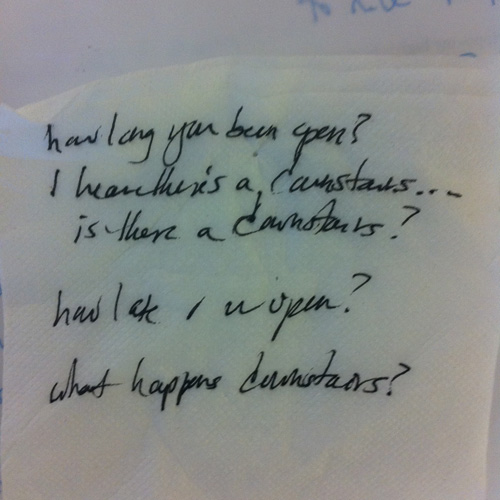 how long you been open?
I hear there's a downstairs...
is there a downstairs?
how late r u open?
what happens downstairs?